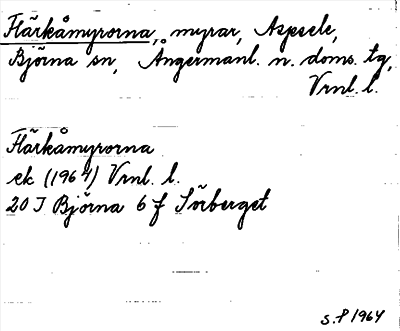 Flärkåmyrorna, myrar, Aspsele,
Björna sn, Ångermanl. n. doms. tg,
Vrnl. l.
Flärkåmyrorna
ek (1964) Vrnl. l.
20 J Björna 6 f Sörberget
S.P 1964